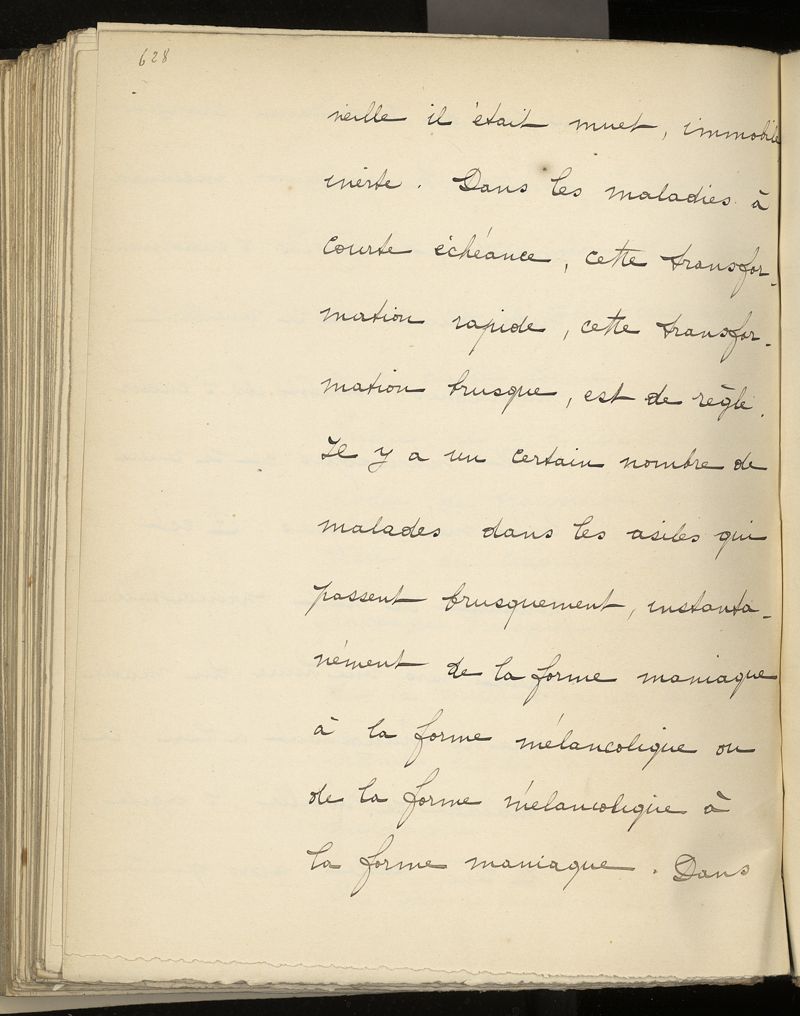 628
veille il était muet, immobile
inerte. Dans les maladies à
courte échéance, cette transfor-
mation rapide, cette transfor-
mation brusque, est de règle.
Il y a un certain nombre de
malades dans les asiles qui
passent brusquement, instanta-
nément de la forme maniaque
à la forme mélancolique ou
de la forme mélancolique à
la forme maniaque. Dans